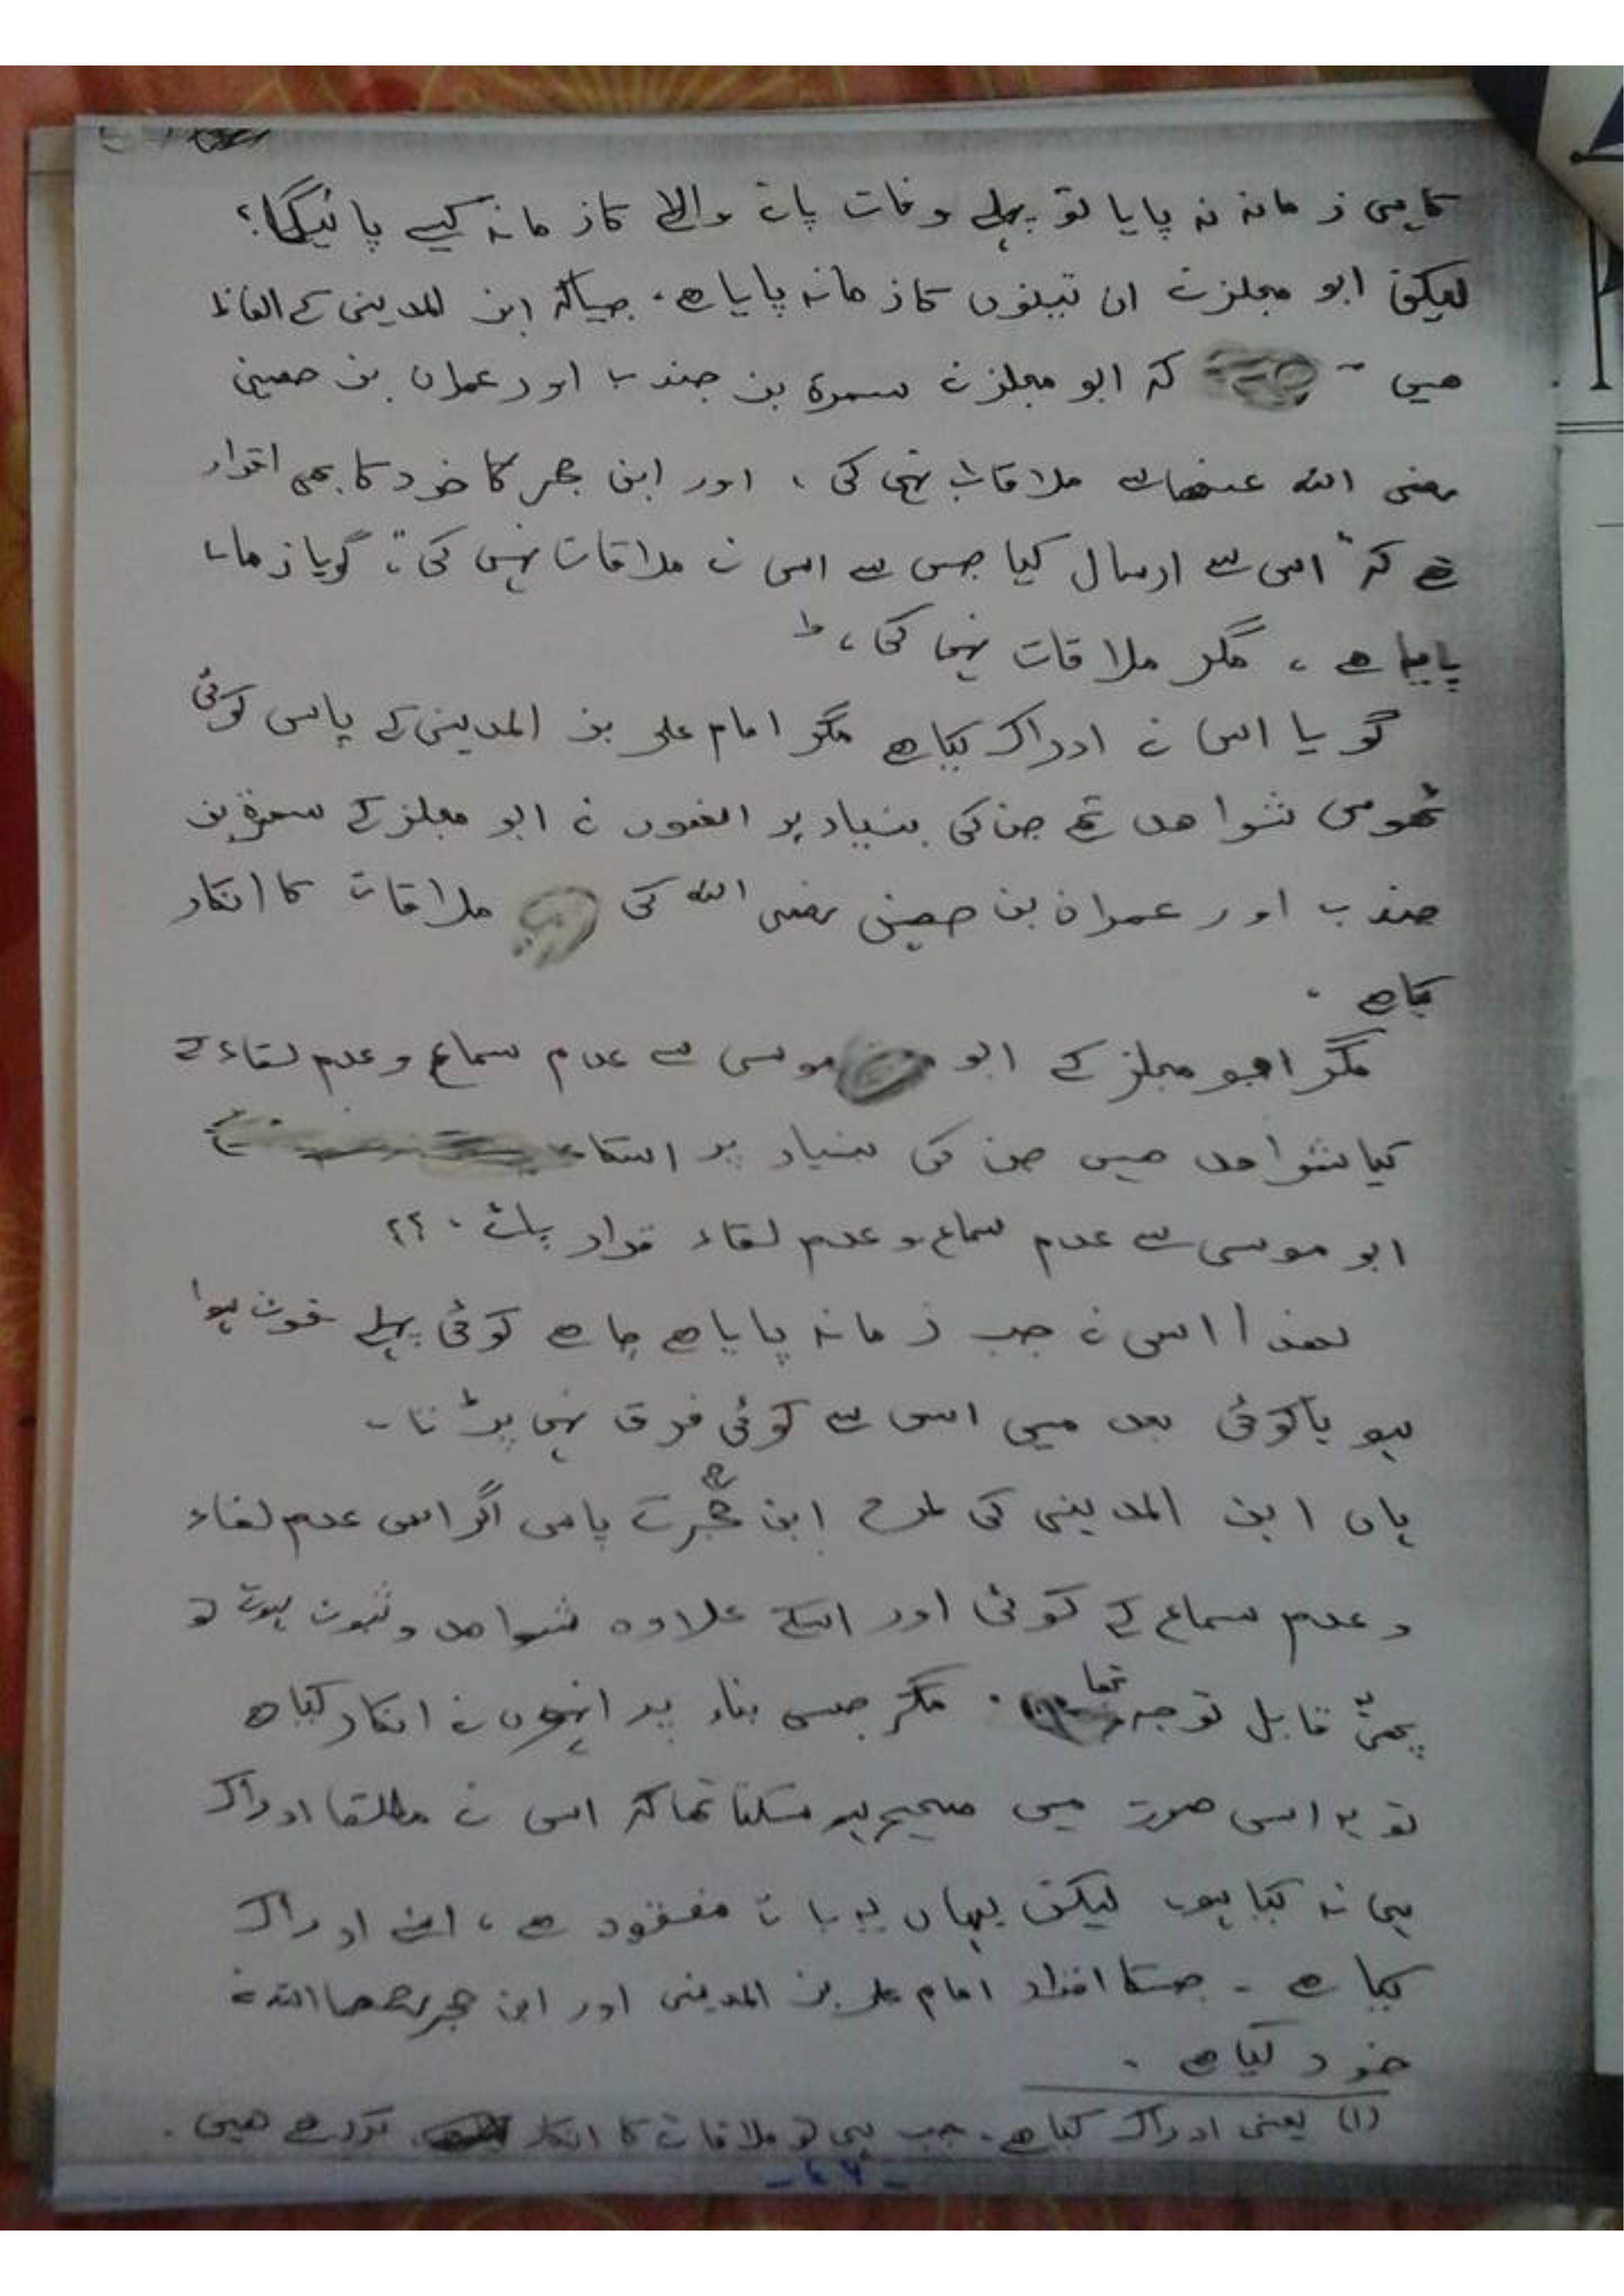 کا ہی زمانہ نہ پایا تو پہلے وفات پانے والے کا زمانہ کیسے پائیگا؟
لیکن ابو مجلز نے ان تینوں کا زمانہ پایا ھے۔ جیساکہ ابن المدینی کے الفاظ
ھیں کہ ابو مجلز نے سمرۃ بن جندب اور عمران بن حصین
رضی اللہ عنھما سے ملاقات نہیں کی، اور ابن حجر کا خود کا بھی اقرار
ھے کہ "اس سے ارسال کیا جس سے اس نے ملاقات نہیں کی"، گویا زمانہ
پایا ھے، مگر ملاقات نہیں کی،
گویا اس نے ادراک کیا ھے مگر امام علی بن المدینی کے پاس کوئی
ٹھوس شواھد تھے جن کی بنیاد پر انھوں نے ابو مجلز کے سمرۃ بن
جندب اور عمران بن حصین رضی اللہ کی ملاقات کا انکار
کیا ھے۔
مگر ابو مجلز کے ابو موسی سے عدم سماع و عدم لقاء کے
کیا شواھد ھیں جن کی بنیاد پر اسکا
ابو موسی سے عدم سماع و عدم لقاء قرار پائے۔؟؟
لھذا اس نے جب زمانہ پایا ھے چاھے کوئی پہلے فوت ہوا
ہو یا کوئی بعد میں اس سے کوئی فرق نہیں پڑتا۔
ہاں ابن المدینی کی طرح ابن حجر کے پاس اگر اس عدم لقاء
و عدم سماع کے کوئی اور اسکے علاوہ شواھد و ثبوت ہوتے تو
پھر قابل توجہ تھا۔ مگر جس بناء پر انہوں نے انکار کیا ھے
تو یہ اس صورت میں صحیح ہو سکتا تھا کہ اس نے مطلقا ادراک
ہی نہ کیا ہو، لیکن یہاں یہ بات مفقود ھے، اسنے ادراک
کیا ھے۔ جسکا اقرار امام علی بن المدینی اور ابن حجر رحمھما اللہ نے
خود کیا ھے۔
(۱) یعنی ادراک کیا ھے۔ جب ہی تو ملاقات کا انکار کررھے ھیں۔